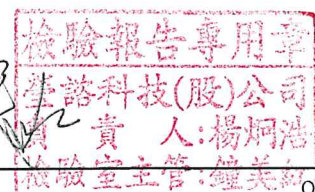 檢驗報告專用章
諮科技(股)公司
責人:楊炯浩
檢驗室主管:鍾美